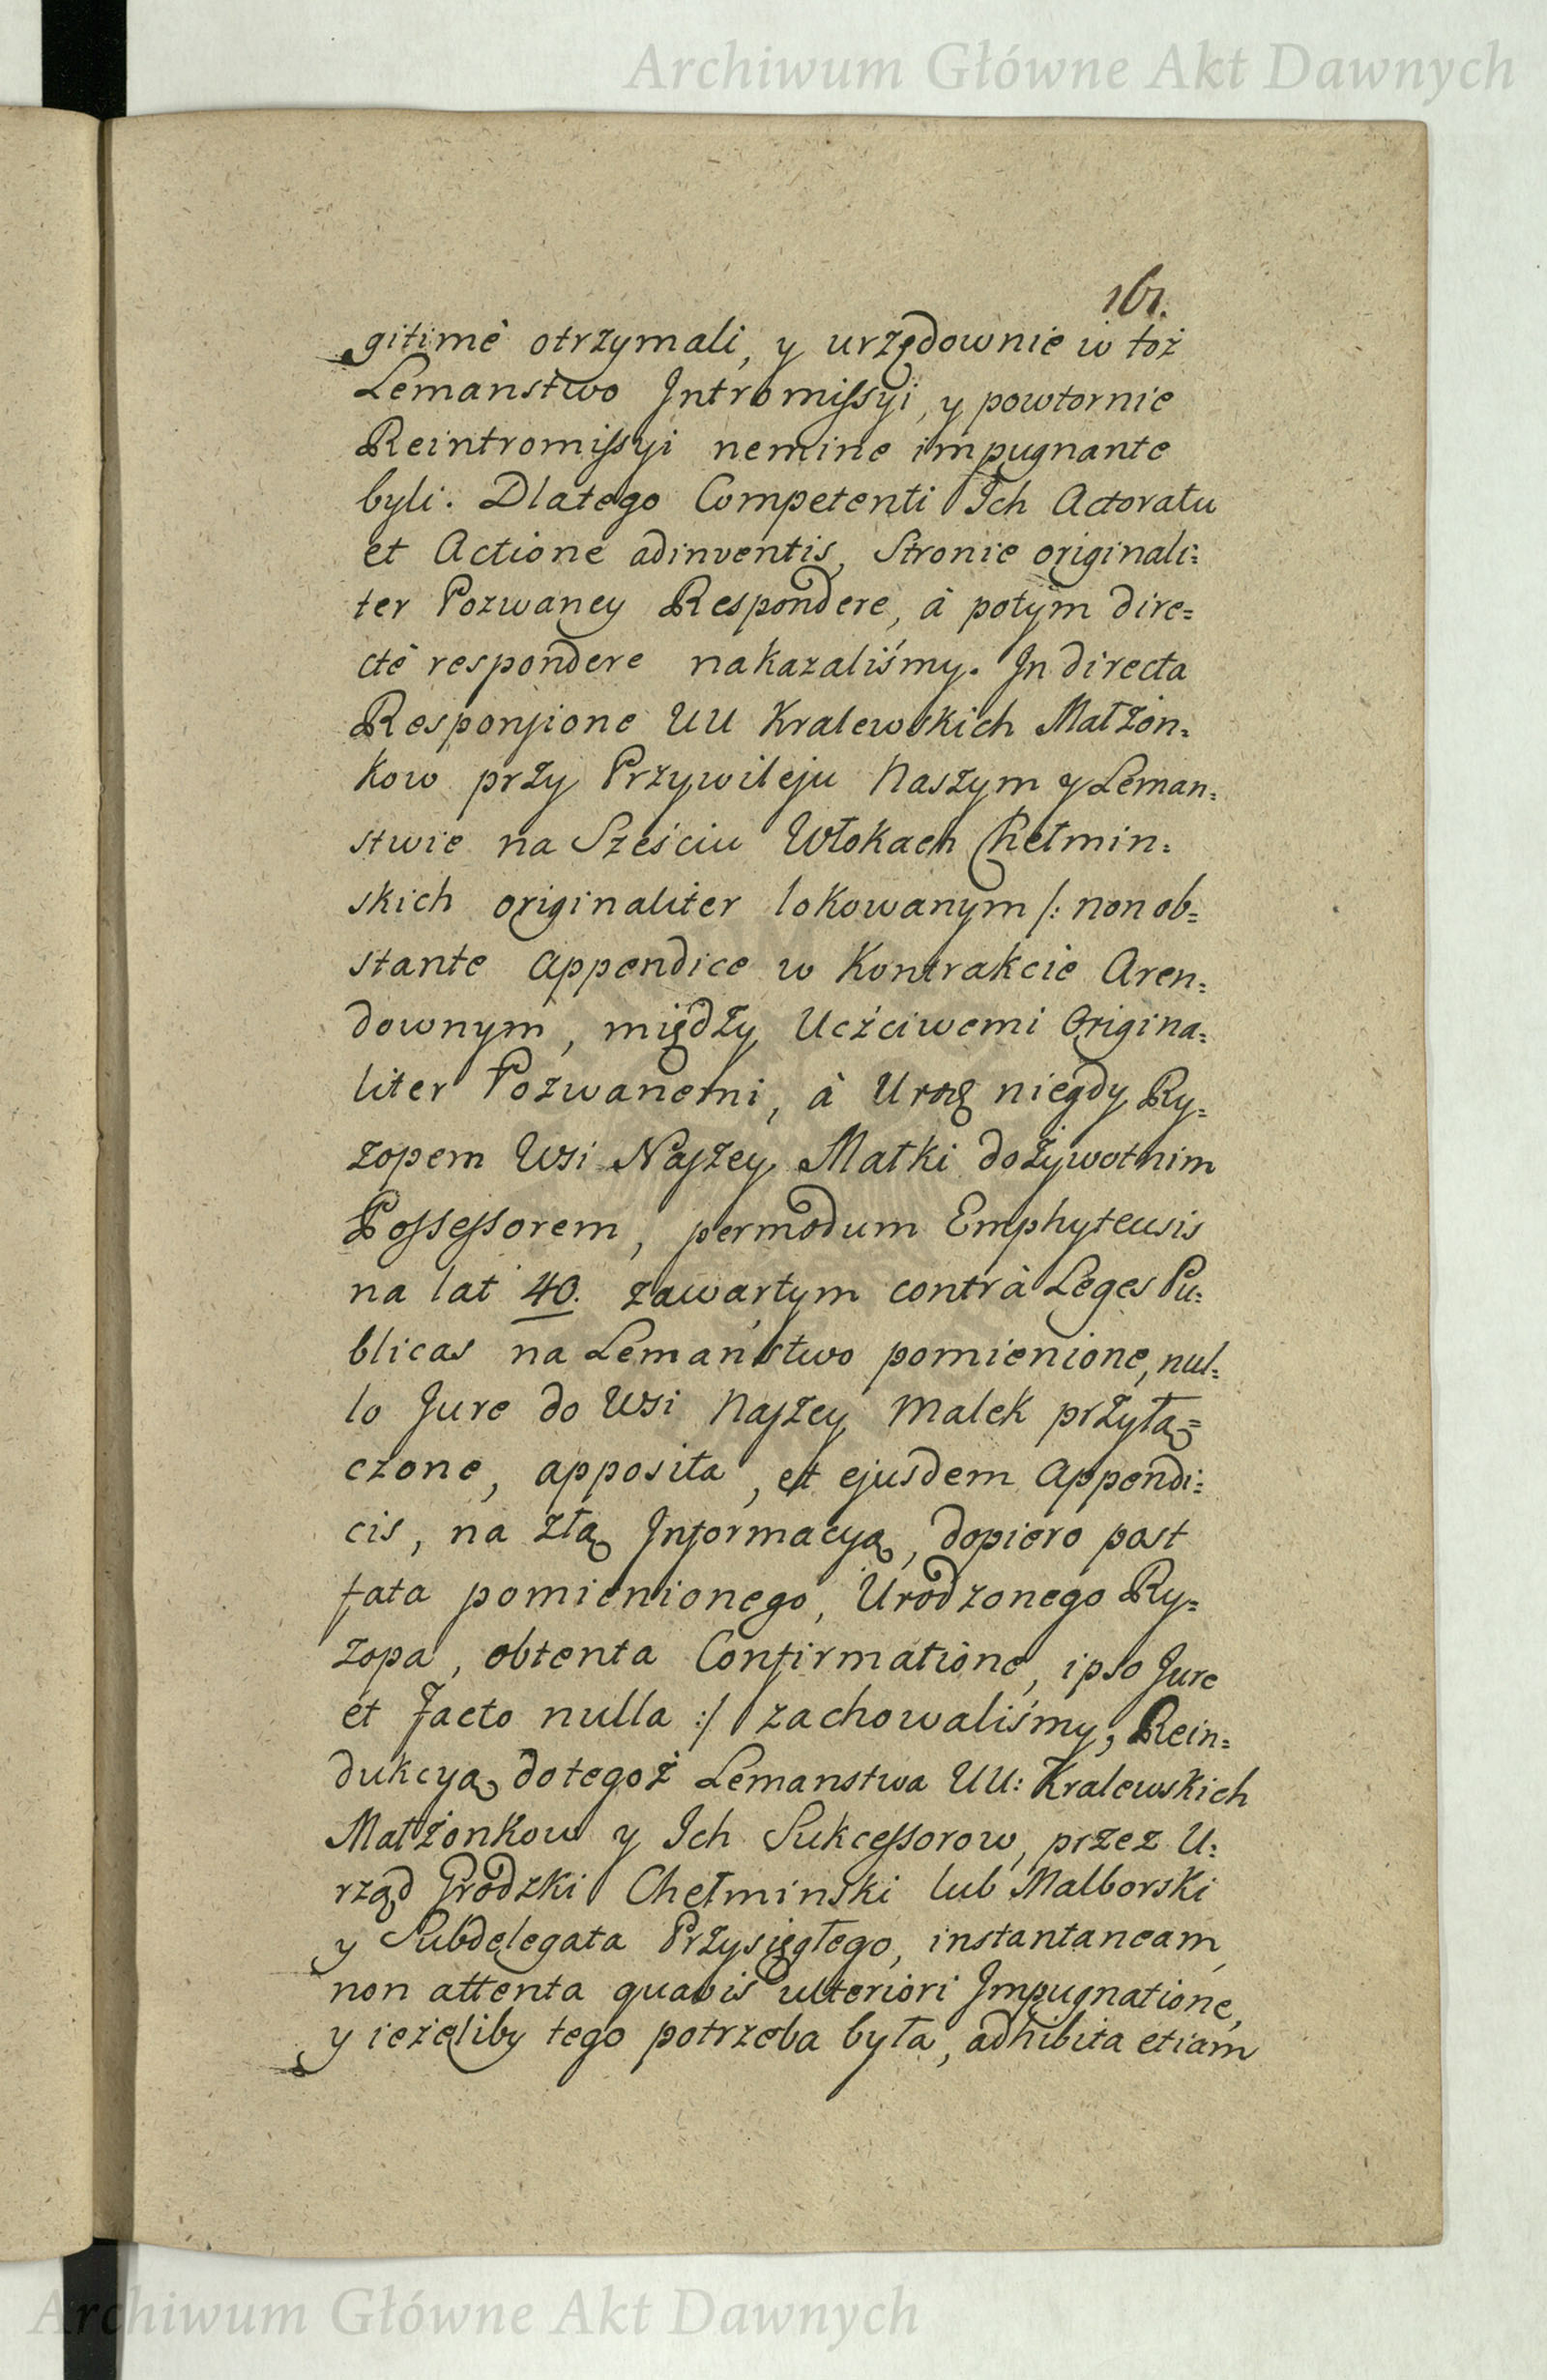 Archiwum Główne Akt Dawnych
161.
gitimè otrzymali, y urzędownie w toż
Lemanstwo Intromissyi, y powtornie
Reintromissyi nemine impugnante
byli. Dlatego Competenti Ich Actoratu
et Actione adinventis, Stronie originali=
ter Pozwaney Respondere, à potym dire=
ctè respondere nakazaliśmy. In directa
Responsione UU Kralewskich Małżon=
kow przy Przywileju Naszym y Leman=
stwie na Sześciu Włokach Chełmin=
skich originaliter lokowanym /: non ob=
stante Appendice w Kontrakcie Aren=
downym, między Uczciwemi Origina=
liter Pozwanemi, à Urodz niegdy Ry=
zopem Wsi Naszey Matki dożywotnim
Possessorem, per modum Emphyteusis
na lat 40. zawartym contrà Leges Pu=
blicas na Lemaństwo pomienione, nul=
lo Jure do Wsi Naszey Malek przyłą=
czone, apposita, et ejusdem Appendi=
cis, na złą Informacyą, dopiero post
fata pomienionego, Urodzonego Ry=
zopa, obtenta Confirmatione, ipso Jure
et facto nulla :/ zachowaliśmy, Rein=
dukcyą do tegoż Lemanstwa UU: Kralewskich
Małżonkow y Ich Sukcessorow, przez U=
rząd Grodzki Chełminski lub Malborski
y Subdelegata Przysięgłego, instantaneam,
non attenta quavis ulteriori Impugnatione,
y ieżeliby tego potrzeba była, adhibita etiam
Archiwum Główne Akt Dawnych